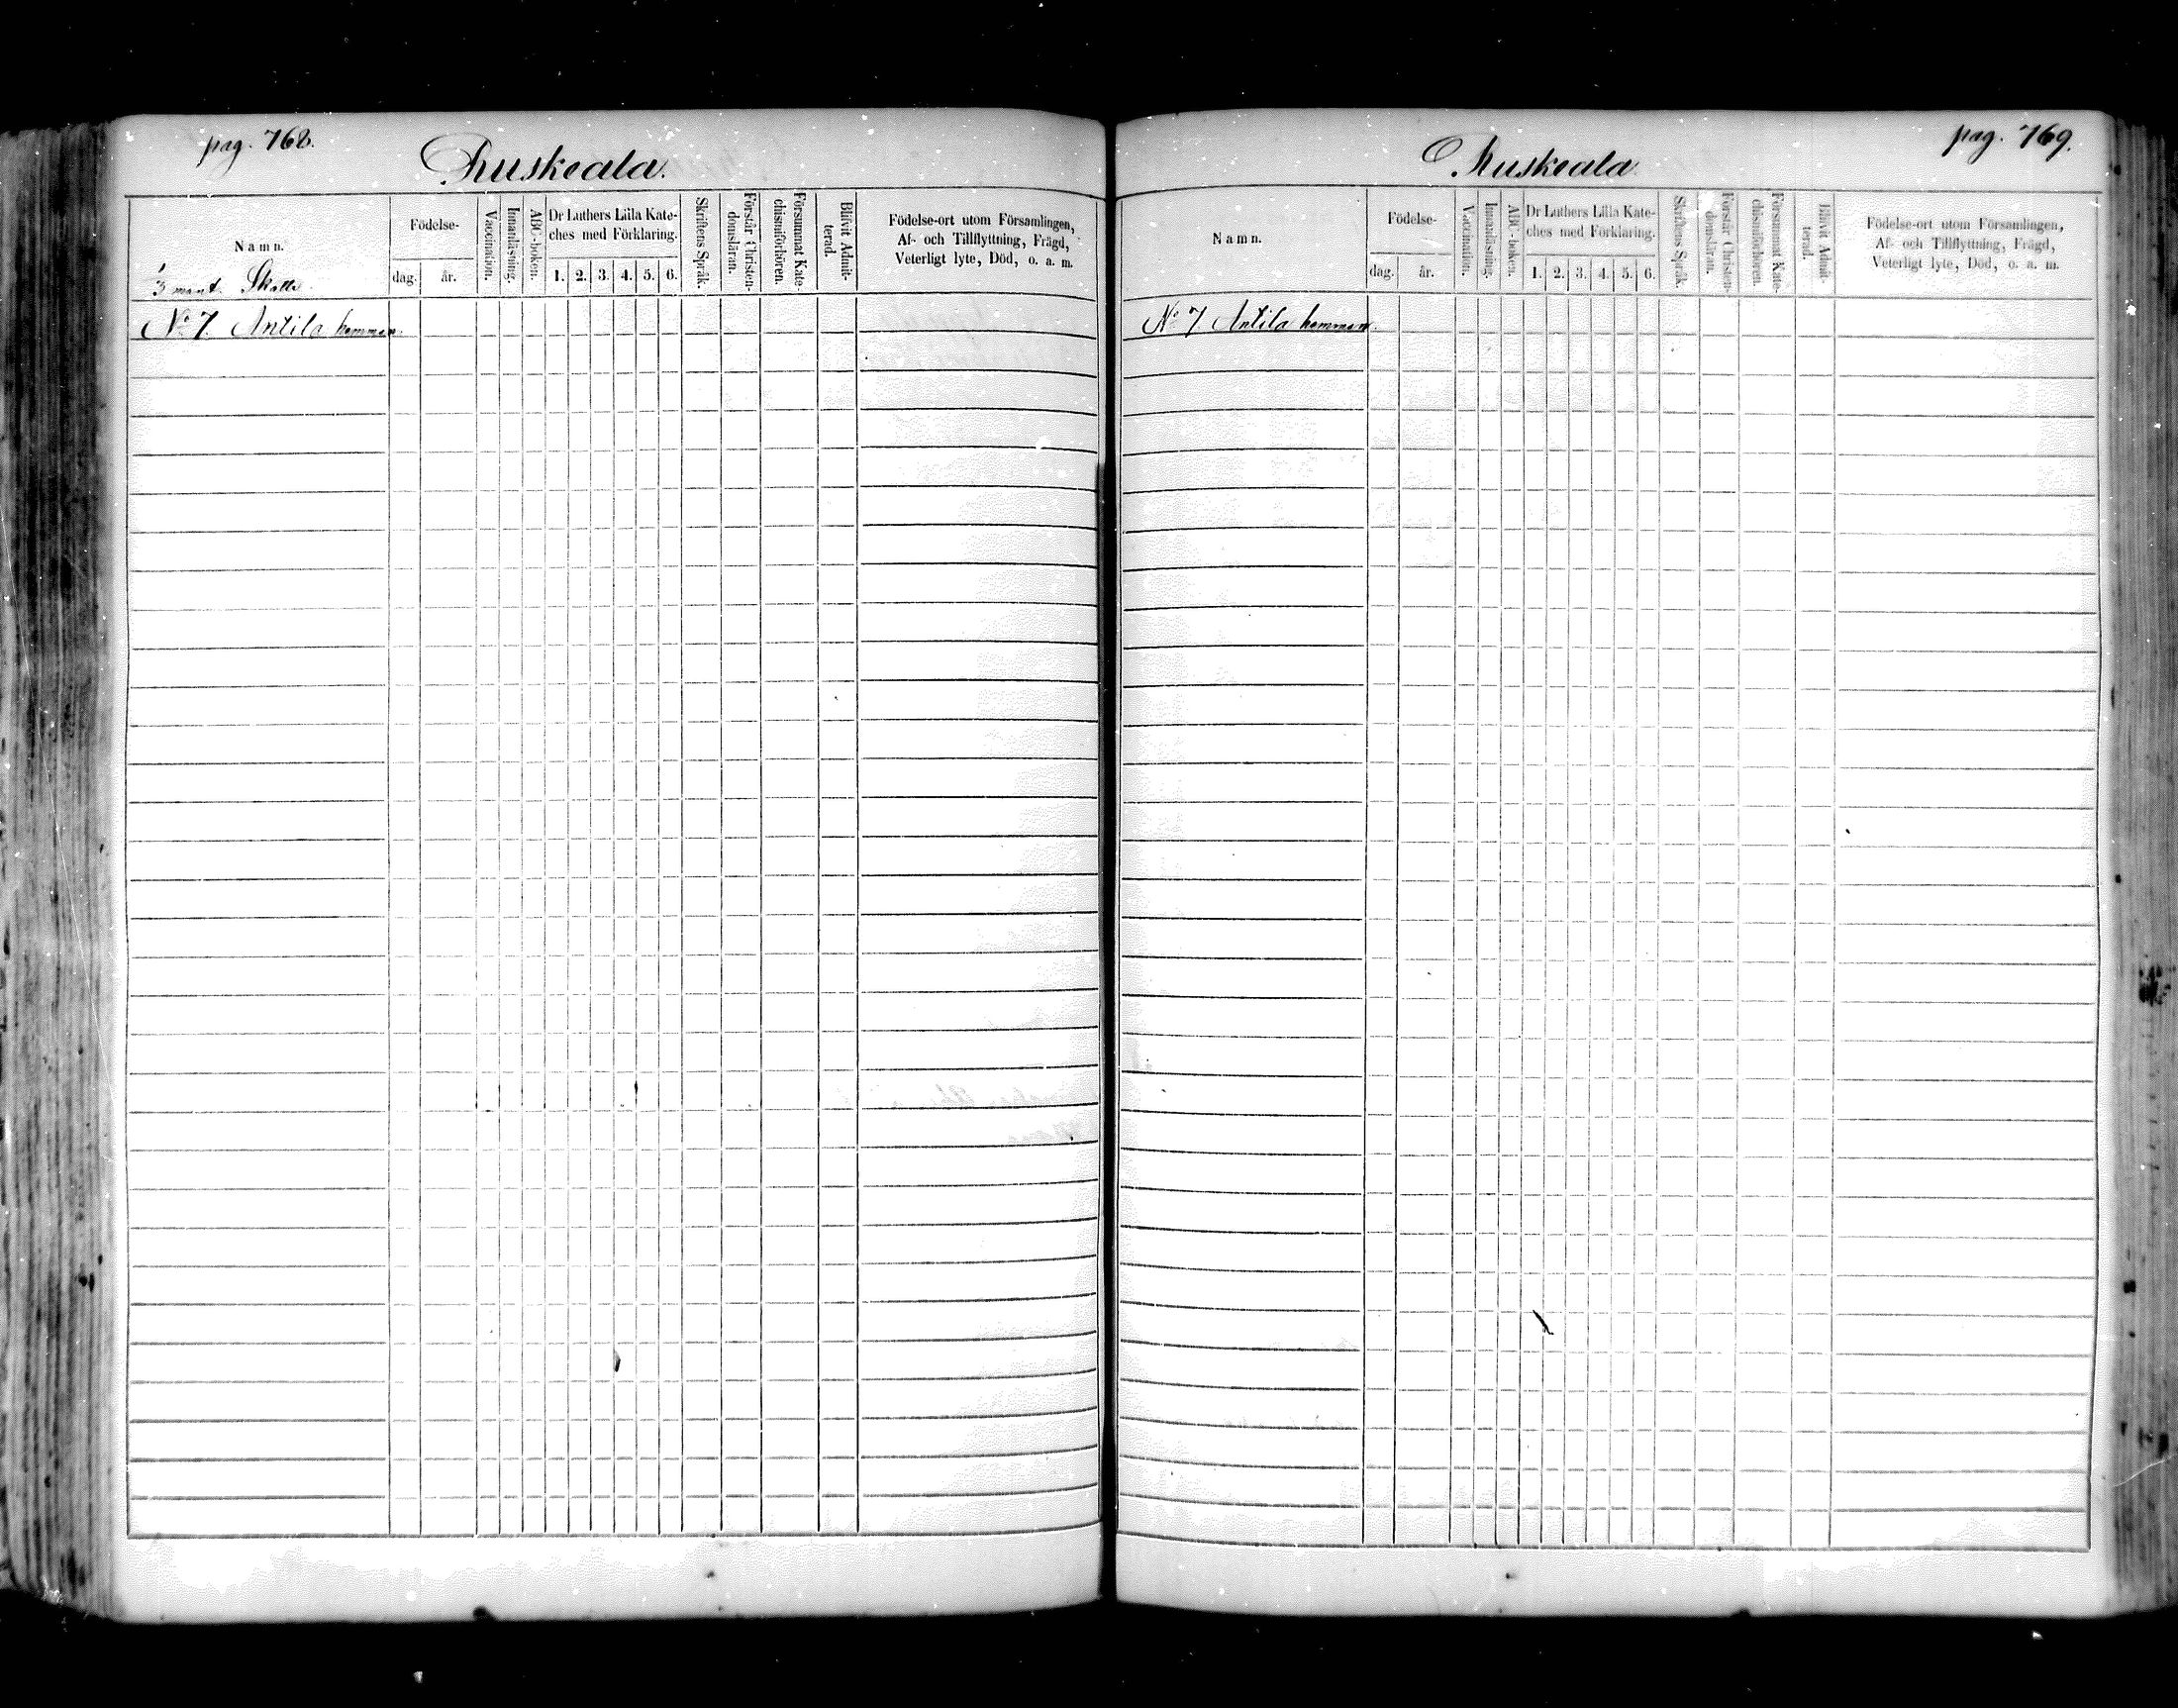 pag. 768.
Ruskeala.
Namn.
Födelse-
dag.
år.
Vaccination.
Innanläsning.
ABC-boken.
Dr Luthers Lilla Kate-
ches med Förklaring.
1. 2. 3. 4. 5. 6.
Skriftens Språk.
Förstår Christen-
domsläran.
Försummat Kate-
chismiförhören.
Blifvit Admit-
terad.
Födelse-ort utom Församlingen,
Af- och Tillflyttning, Frägd,
Veterligt lyte, Död, o. a. m.
mant. Skatte
No 7. Antila hemman.
pag. 769.
Ruskeala
Namn.
Födelse-
dag.
år.
Vaccination.
Innanläsning.
ABC-boken.
Dr Luthers Lilla Kate-
ches med Förklaring.
1. 2. 3. 4. 5. 6.
Skriftens Språk.
Förstår Christen-
domsläran.
Försummat Kate-
chismiförhören.
Blifvit Admit-
terad.
Födelse-ort utom Församlingen,
Af- och Tillflyttning, Frägd,
Veterligt lyte, Död, o. a. m.
No 7 Antila hemman.